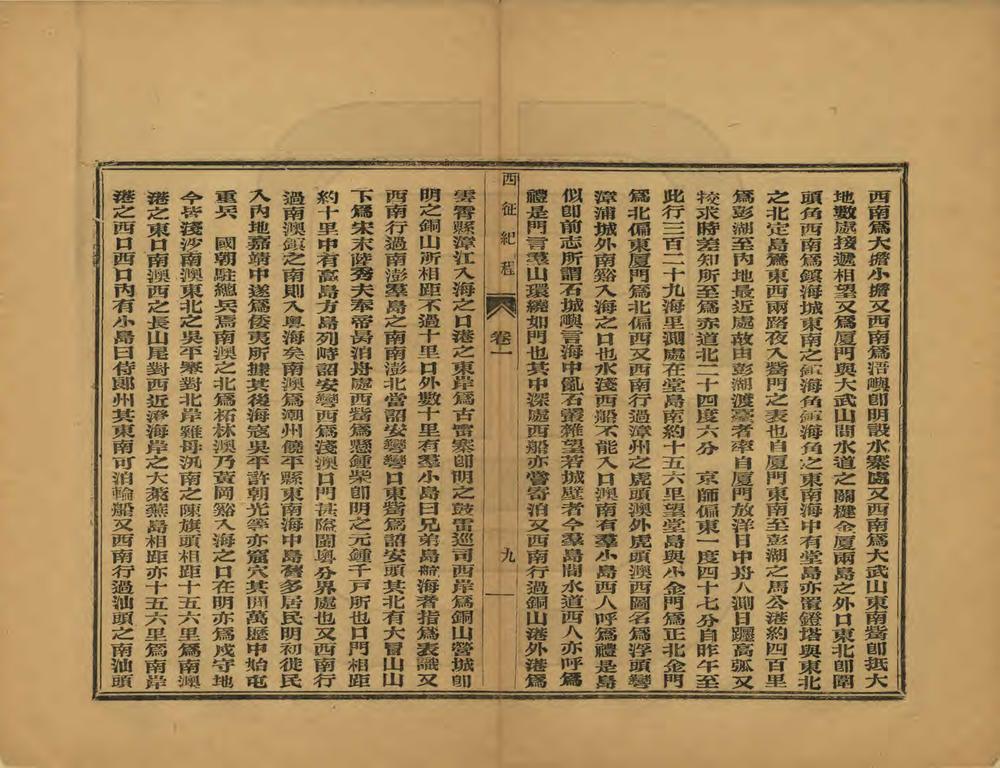 西南爲大擔小擔又西南爲浯嶼卽明設水寨處又西南爲大武山東南嘴卽抵大
地數處接遞相望又爲厦門與大武山間水道之關楗金厦兩島之外口東北卽圍
頭角西南爲鎮海城東南之鎮海角鎮海角之東南海中有堂島亦置鐙塔與東北
之北定島爲東西兩路夜入嘴門之表也自厦門東南至彭湖之馬公港約四百里
爲彭湖至內地最近處故由彭湖渡臺者率自厦門放洋日中舟人測日躔高弧又
較求時差知所至爲赤道北二十四度六分 京師偏東一度四十七分自昨午至
此行三百二十九海里測處在堂島南約十五六里望堂島與小金門爲正北金門
爲北偏東厦門爲北偏西又西南行過漳州之虎頭澳外虎頭澳西圖名爲浮頭彎
漳浦城外南谿入海之口也水淺西船不能入口澳南有羣小島西人呼爲禮是島
似卽前志所謂石城嶼言海中亂石叢雜望若城壁者今羣島間水道西人亦呼爲
禮是門言羣山環繞如門也其中深處西船亦嘗寄泊又西南行過銅山港外港爲
西征紀程 卷一 九
雲霄縣漳江入海之口港之東岸爲古雷寨卽明之鼓雷巡司西岸爲銅山營城卽
明之銅山所相距不過十里口外數十里有羣小島曰兄弟島航海者指爲表識又
西南行過南澎羣島之南南澎北當詔安彎彎口東嘴爲詔安頭其北有大冒山山
下爲宋末陸秀夫奉帝昺泊舟處西嘴爲懸鍾柴卽明之元鍾千戶所也口門相距
約十里中有高島方島列峙詔安彎西爲淺澳口門甚隘閩粵分界處也又西南行
過南澳鎮之南則入粵海矣南澳爲潮州饒平縣東南海中島舊多居民明初徙民
入內地嘉靖中遂爲倭夷所據其後海寇吳平許朝光等亦窟穴其間萬歷中始屯
重兵 國朝駐總兵焉南澳之北爲柘林澳乃黃岡谿入海之口在明亦爲戍守地
今皆淺沙南澳東北之吳平寨對北岸雞母沕南之陳旗頭相距十五六里爲南澳
港之東口南澳西之長山尾對西近澄海岸之大萊蕪島相距亦十五六里爲南岸
港之西口西口內有小島曰侍郎州其東南可泊輪船又西南行過汕頭之南汕頭